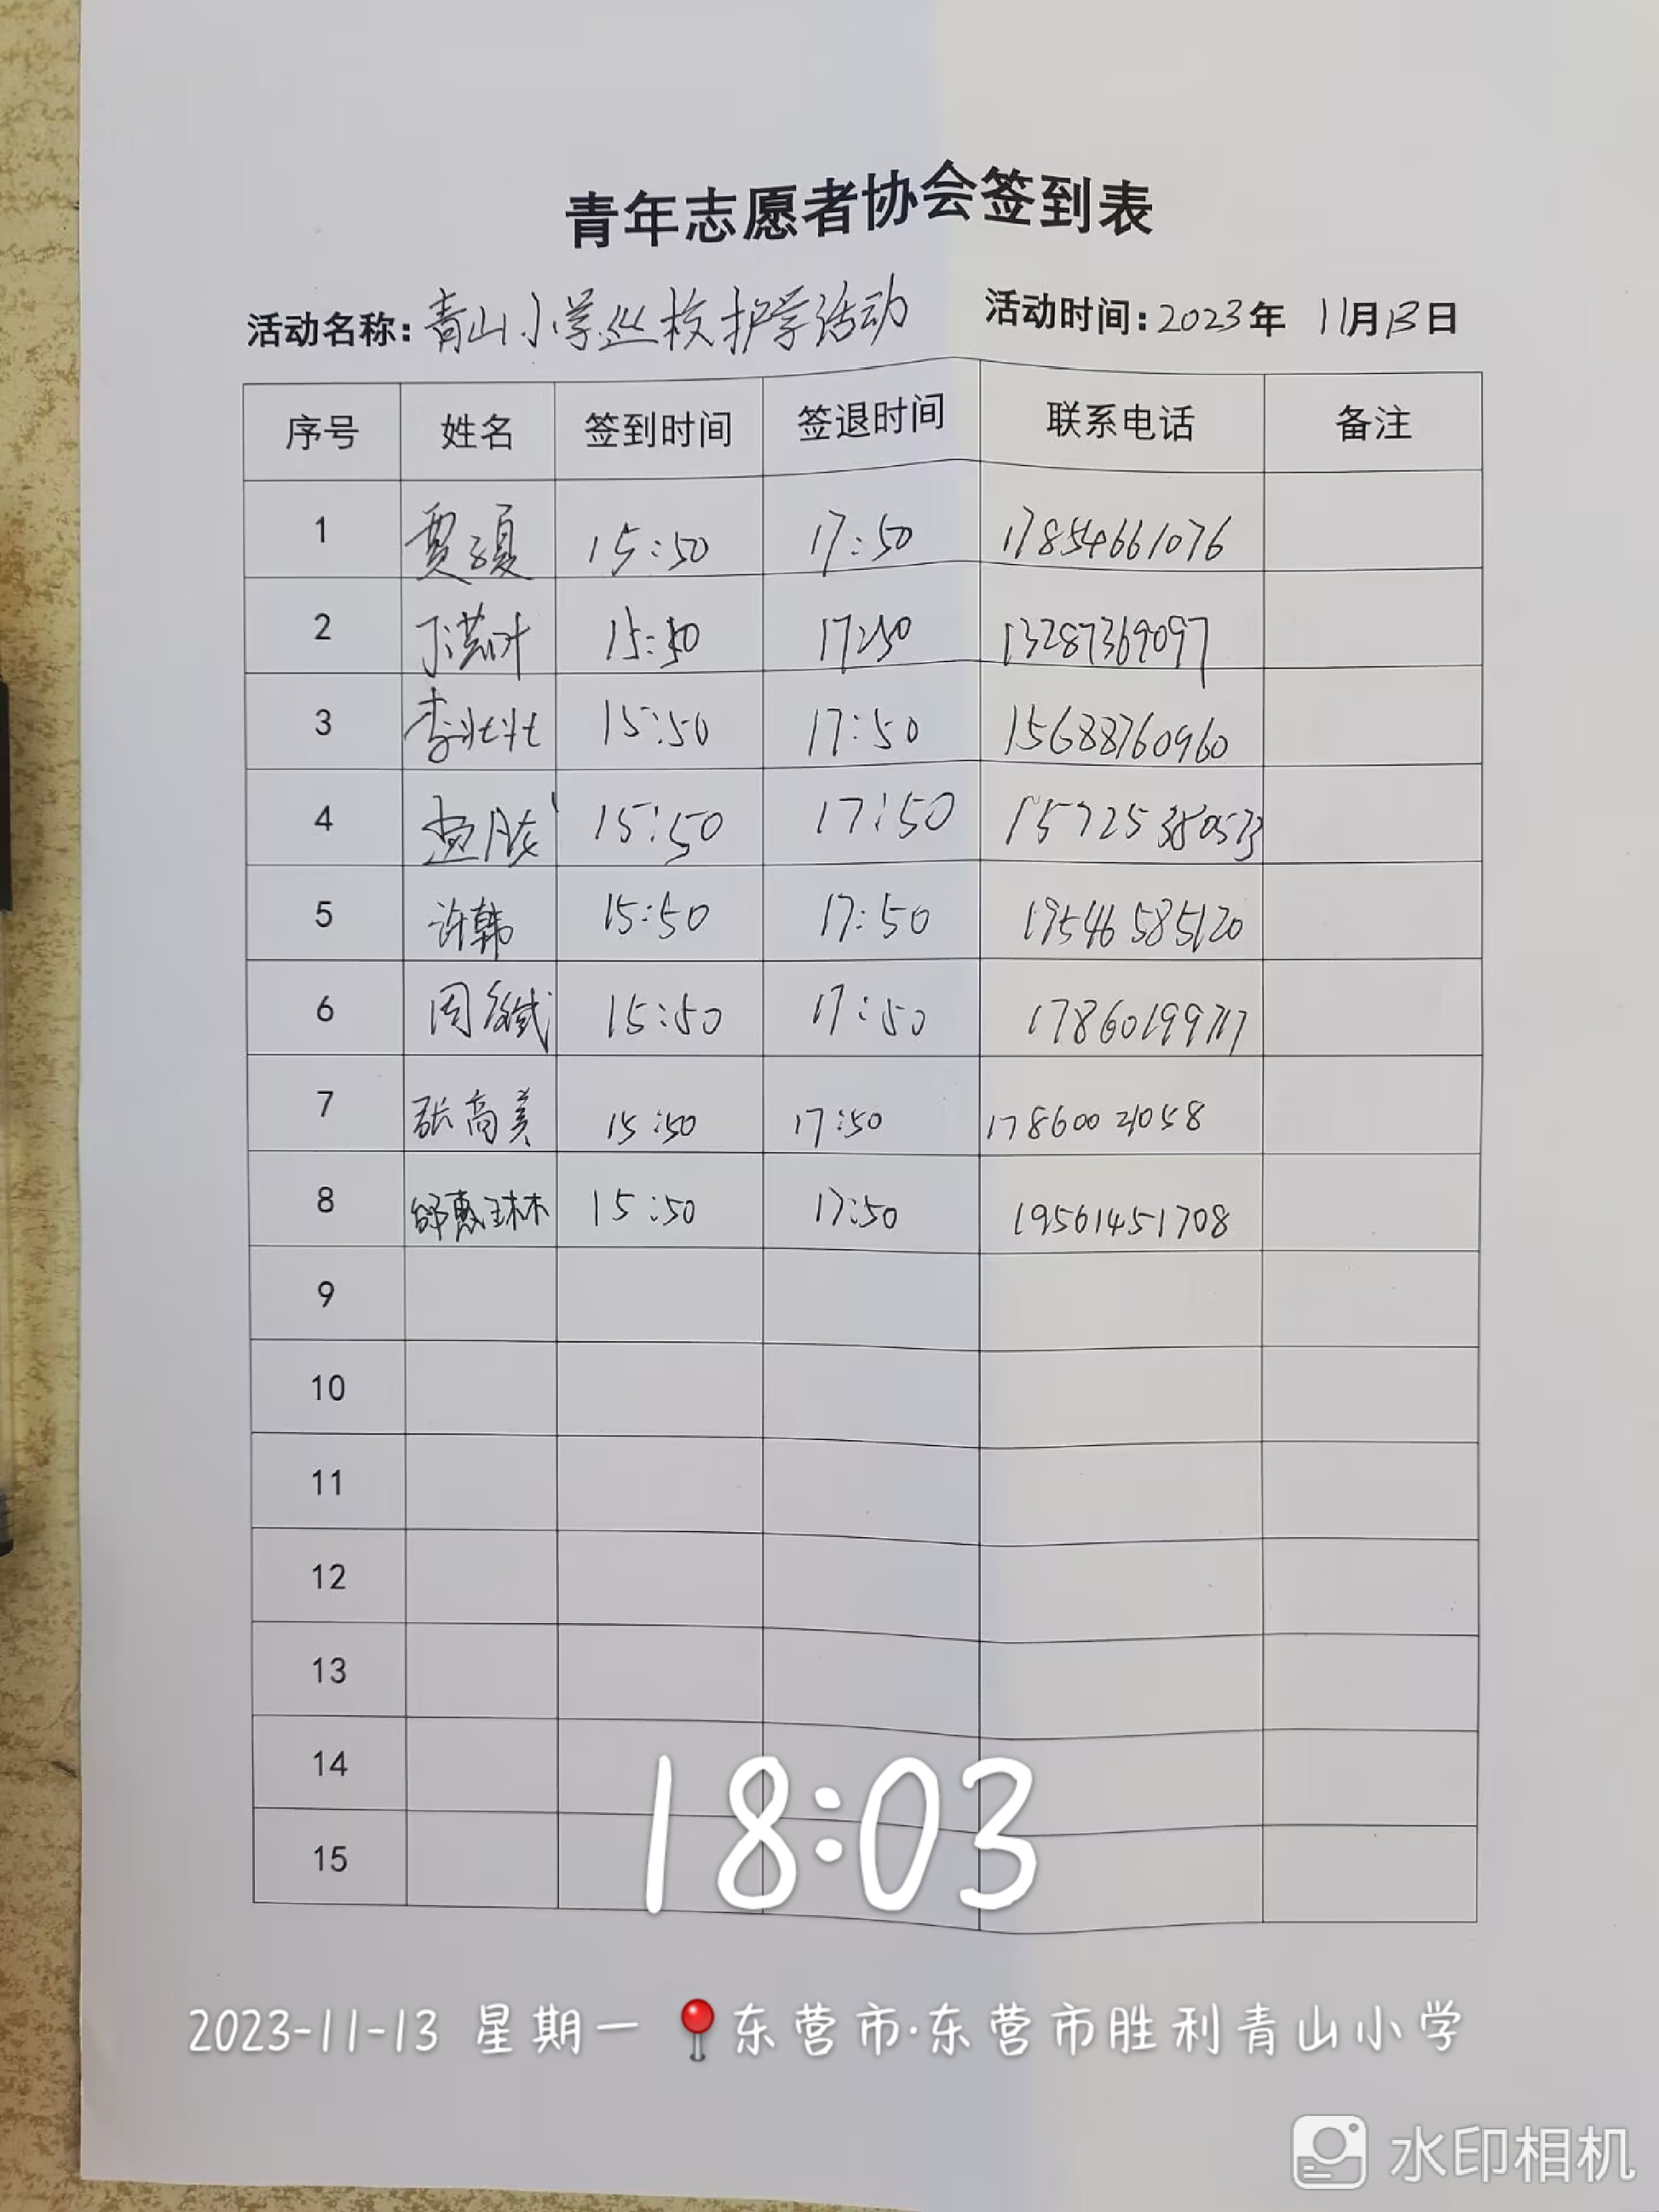 青年志愿者协会签到表
活动名称:青山小学巡校护学活动 活动时间:2023年 11月13日
序号 姓名 签到时间 签退时间 联系电话 备注
1 贾夏 15:50 17:50 17854661076
2 丁洪叶 15:50 17:50 13287369097
3 李壮壮 15:50 17:50 15688760960
4 孟 15:50 17:50 15725380573
5 许韩 15:50 17:50 19546585120
6 周 15:50 17:50 17860199717
7 张高美 15:50 17:50 17860021058
8 邰惠琳 15:50 17:50 19561451708
9
10
11
12
13
14
15
18:03
2023-11-13 星期一 东营市·东营市胜利青山小学
水印相机